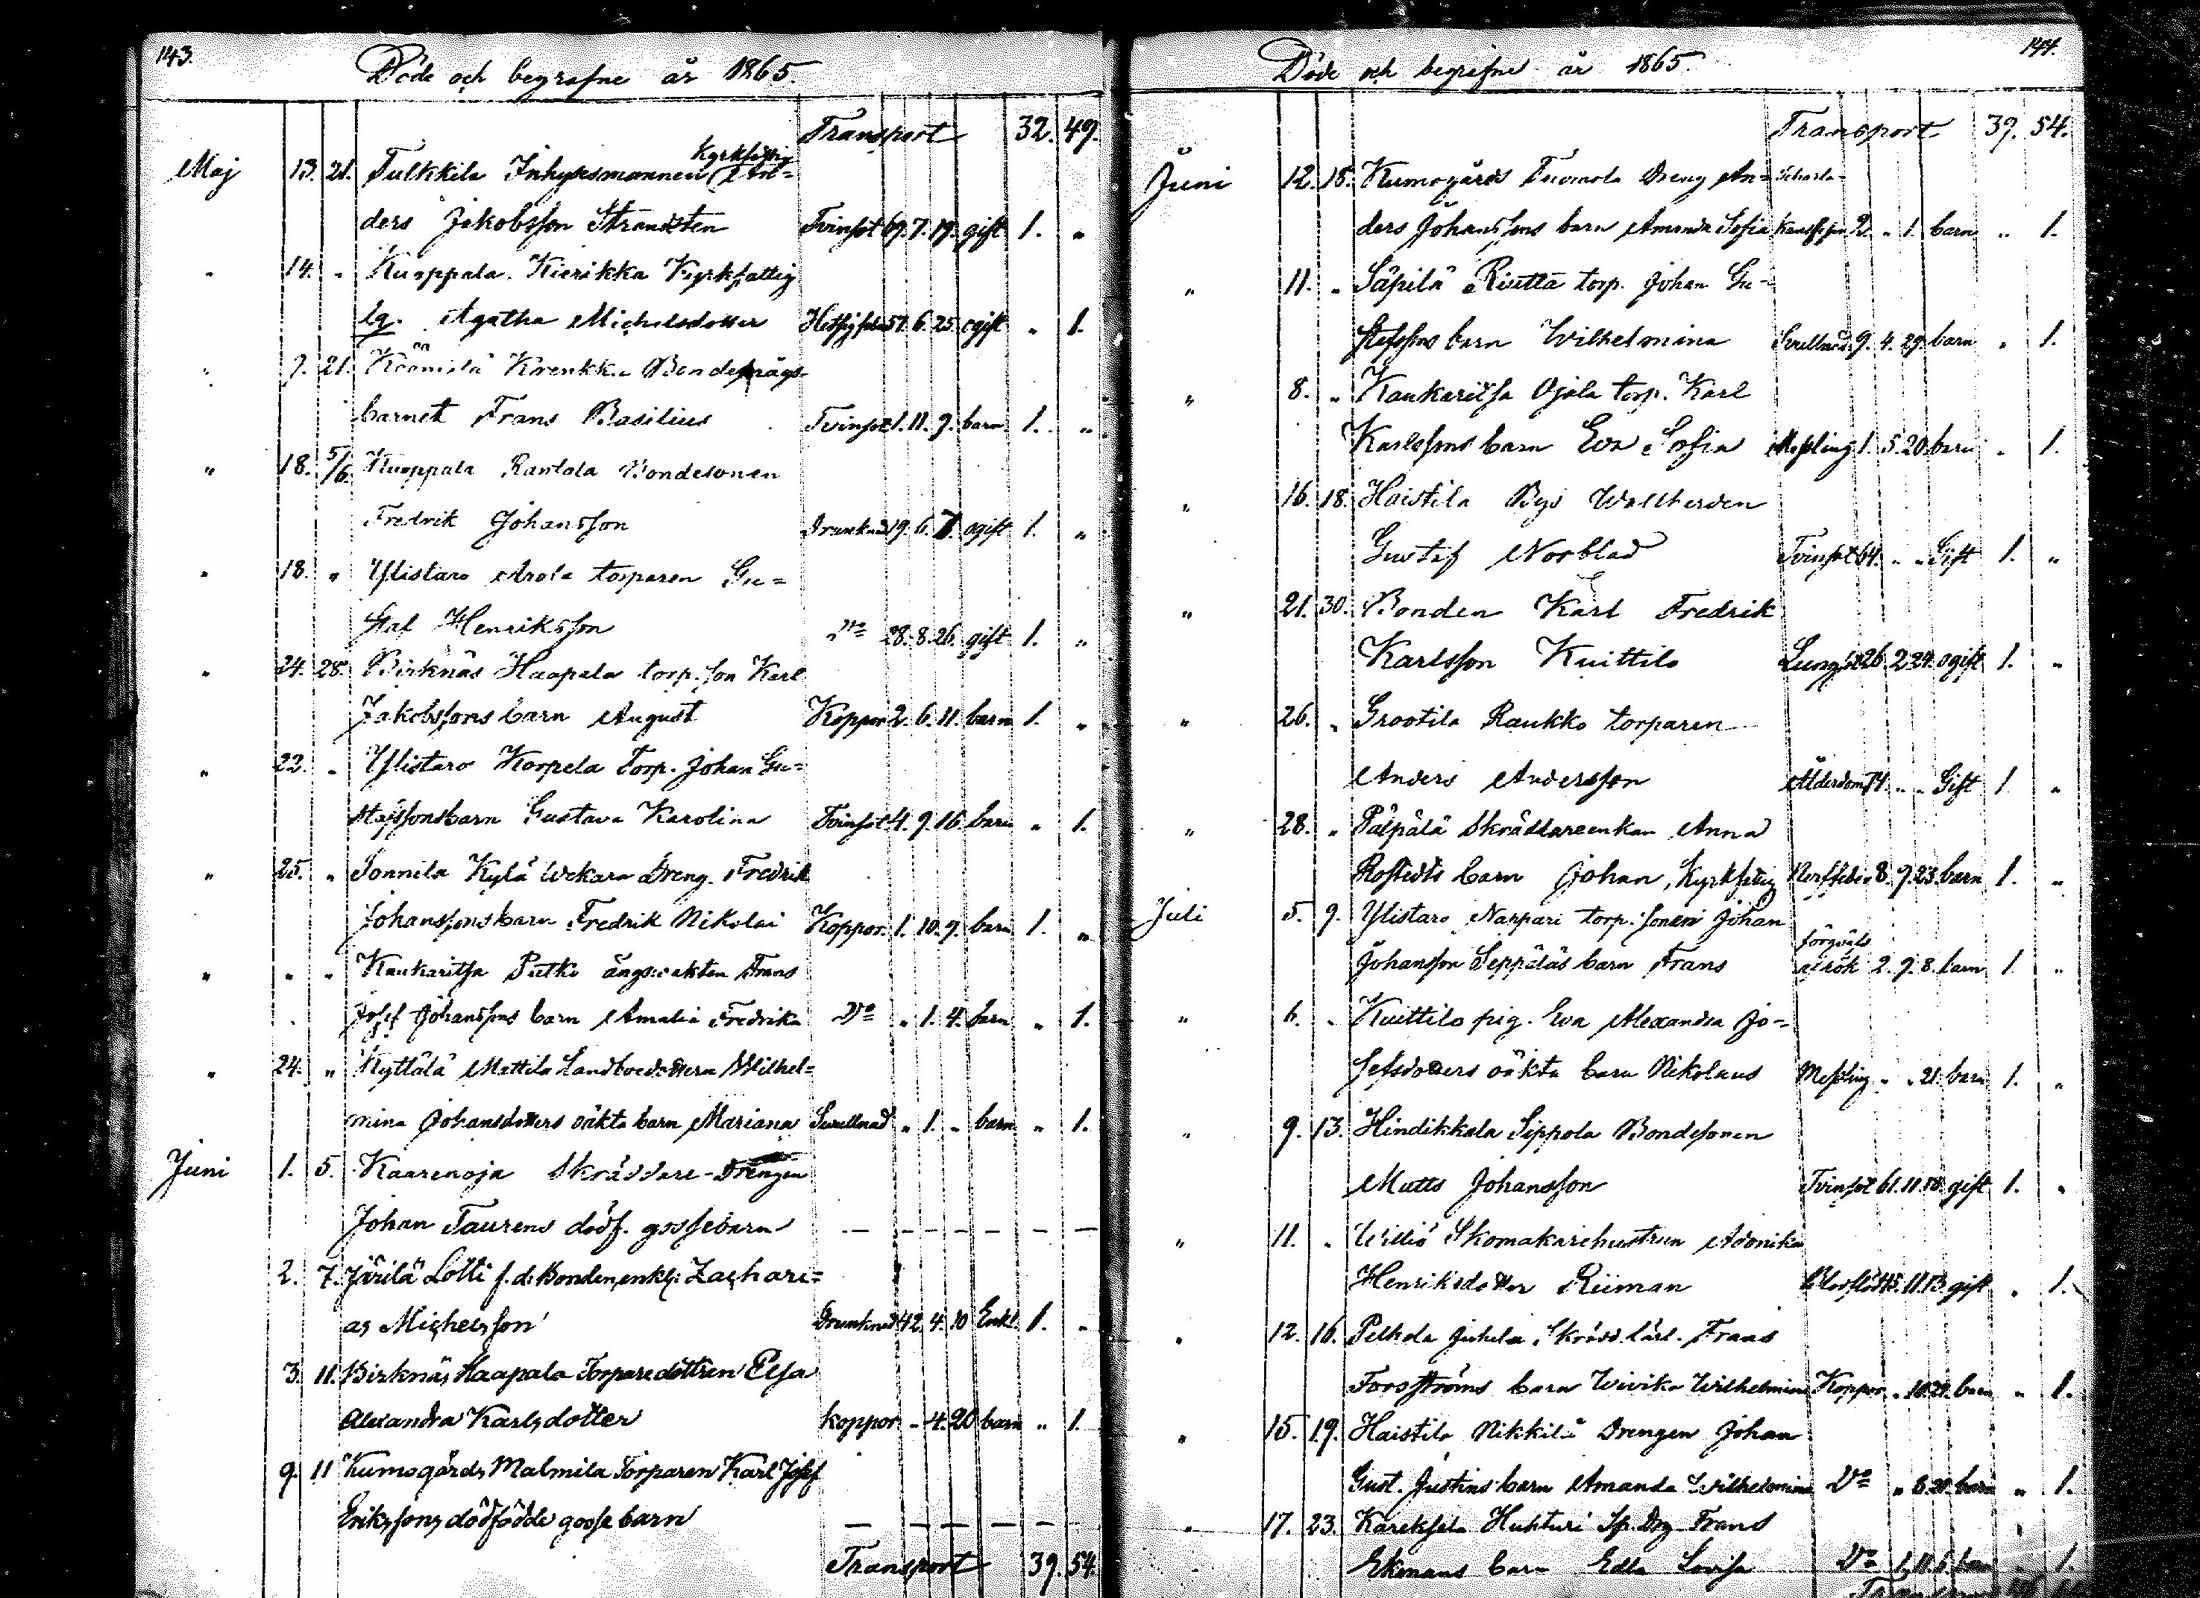 143.
Döde och begrafne år 1865.
Transport 32. 49.
Kyrkfattig
Maj 13. 21. Tulkkila Inhysesmannen An-
ders Jakobsson Strandsten Tvinsot 69. 7. 19. gift 1. "
" 14. " Kuoppala Kierikka Kyrkfattig
lg. Agatha Michelsdotter 57. 6. 25 ogift " 1.
" 7. 21. Krenkka Bonde
barnet Frans Basilius Tvinsot 1. 11. 9. barn 1. "
" 18. 5/6 Kuoppala Rantala Bondesonen
Fredrik Johansson Drunknad 19. 6. 7. ogift 1. "
" 18. " Ylistaro Arola torparen Gu=
staf Henriksson Do 28. 8. 26. gift 1. "
" 24. 28. Birknäs Haapala torp. son Karl
Jakobssons barn August Koppor 2. 6. 11. barn 1. "
" 22. " Ylistaro Korpela Torp. Johan Gu=
stafssons barn Gustava Karolina Tvinsot 4. 9. 16. barn " 1.
" 25. " Sonnila Kylä Wekara Dreng. Fredrik
Johanssons barn Fredrik Nikolai Koppor. 1. 10. 9. barn 1. "
" " " Kaukaritsa Putko ängsvakten Frans
Josef Johanssons barn Amalia Fredrika Do " 1. 4. barn " 1.
" 24. " Kyttälä Mattila Landbodottern Wilhel=
mina Johansdotters oäkta barn Mariana Svullnad " 1. " barn " 1.
Juni 1. 5. Kaarenoja Skräddare-Drengen
Johan Taurens dödf. gossebarn — — — — — —
2. 7. Järilä Lotti f.d. Bonden, enkl: Zachari=
as Michelsson Drunknad 42. 4. 10 Enkl. 1. "
3. 11. Birknäs Haapala Torparedottren Elsa
Alexandra Karlsdotter koppor. " 4. 20 barn " 1.
9. 11 Kumogårds Malmila Torparen Karl Josef
Erikssons dödfödde gosse barn — — — — — —
Transport 39. 54.
144.
Döde och begrafne år 1865.
Transport 39. 54.
Juni 12. 18. Kumogårds Tuomola Dreng An=
ders Johanssons barn Amanda Sofia 2. " 1. barn " 1.
" 11. " Säpilä Riutta torp. Johan Gu=
stafssons barn Wilhelmina Svullnad 9. 4. 29. barn " 1.
" 8. " Kaukaritsa Ojala torp. Karl
Karlssons barn Eva Sofia Messling 1. 5. 20. barn " 1.
" 16. 18. Haistila Bys Wallherden
Gustaf Norblad Tvinsot 64. " " Gift 1. "
" 21. 30. Bonden Karl Fredrik
Karlsson Kuittilo Lungsot 26. 2. 24. ogift 1. "
" 26. " Grootila Raukko torparen
Anders Andersson Ålderdom 74. " " Gift 1 "
" 28. " Paipälä Skräddareenkan Anna
Rostedts barn Johan, Kyrkfattig Nerffeber 8. 9. 23. barn 1. "
Juli 5. 9. Ylistaro Nappari torp. sonen Johan
Johansson Seppäläs barn Frans 2. 9. 8. barn 1. "
" 6. " Kuittilo pig. Eva Alexandra Jo=
sefsdotters oäkta barn Nikolaus Messling " " 21. barn 1. "
" 9. 13. Hindikkala Sippola Bondesonen
Matts Johansson Tvinsot 61. 11. gift 1. "
" 11. " Willió Skomakarehustrun Adonika
Henriksdotter Riiman gift " 1.
" 12. 16. Pelhola Juhola Skrädd. lärl. Frans
Forsströms barn Wivika Wilhelmina Koppor " 10. 29. barn " 1.
" 15. 19. Haistila Nikkilä Drengen Johan
Gust. Justins barn Amanda Wilhelmina Do " barn " 1.
" 17. 23. Kareksela Huhturi Sp. Dg. Frans
Ekmans barn Edla Lovisa Do 1. 11. 6. barn " 1.